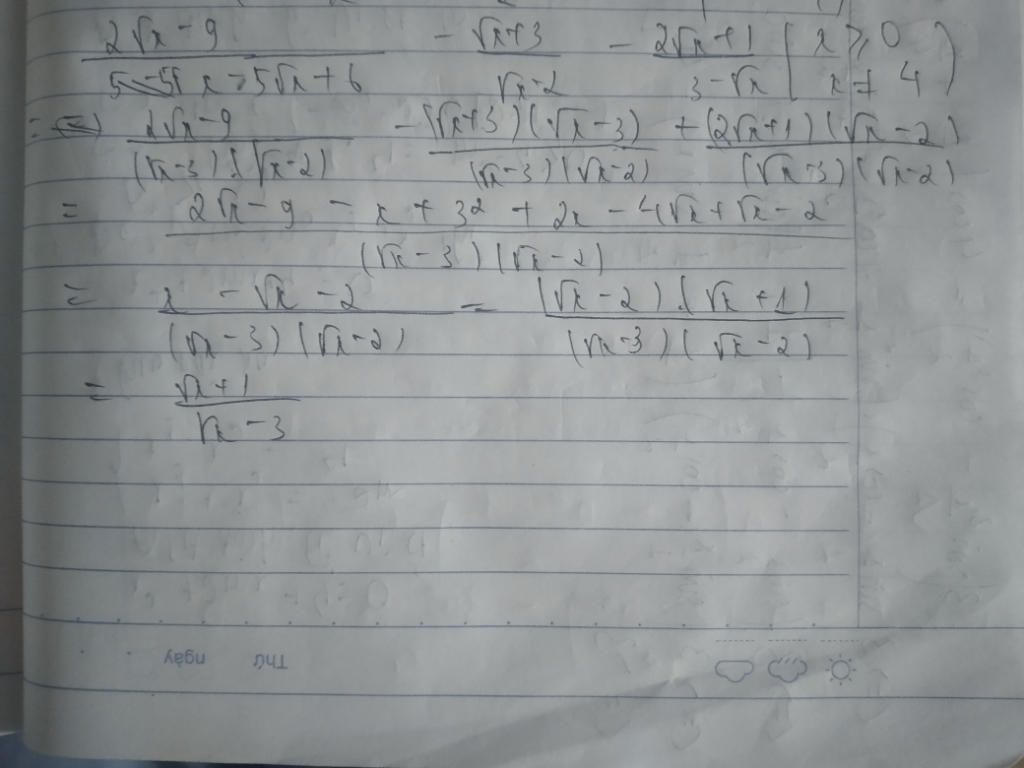 2√x - 9 / x - 5√x + 6 - √x + 3 / √x - 2 - 2√x + 1 / 3 - √x ( x ≥ 0 x ≠ 4 )
= 2√x - 9 / (√x - 3).(√x - 2) - (√x + 3)(√x - 3) / (√x - 3)(√x - 2) + (2√x + 1)(√x - 2) / (√x - 3)(√x - 2)
= 2√x - 9 - x + 3² + 2x - 4√x + √x - 2 / (√x - 3)(√x - 2)
= x - √x - 2 / (√x - 3)(√x - 2) = (√x - 2).(√x + 1) / (√x - 3)(√x - 2)
= √x + 1 / √x - 3
Thứ ngày